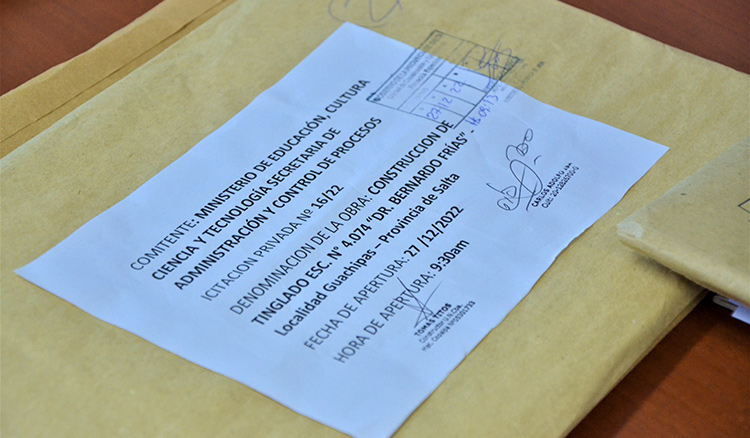 COMITENTE: MINISTERIO DE EDUCACIÓN, CULTURA
CIENCIA Y TECNOLOGÍA SECRETARIA DE
ADMINISTRACIÓN Y CONTROL DE PROCESOS
ICITACION PRIVADA Nº 16/22
DENOMINACION DE LA OBRA: CONSTRUCCION DE
TINGLADO ESC. N° 4.074 “DR. BERNARDO FRÍAS” -
Localidad Guachipas – Provincia de Salta
FECHA DE APERTURA: 27 /12/2022
HORA DE APERTURA: 9:30am
27/12/22
TOMAS TITOS
CARLOS ADOLFO